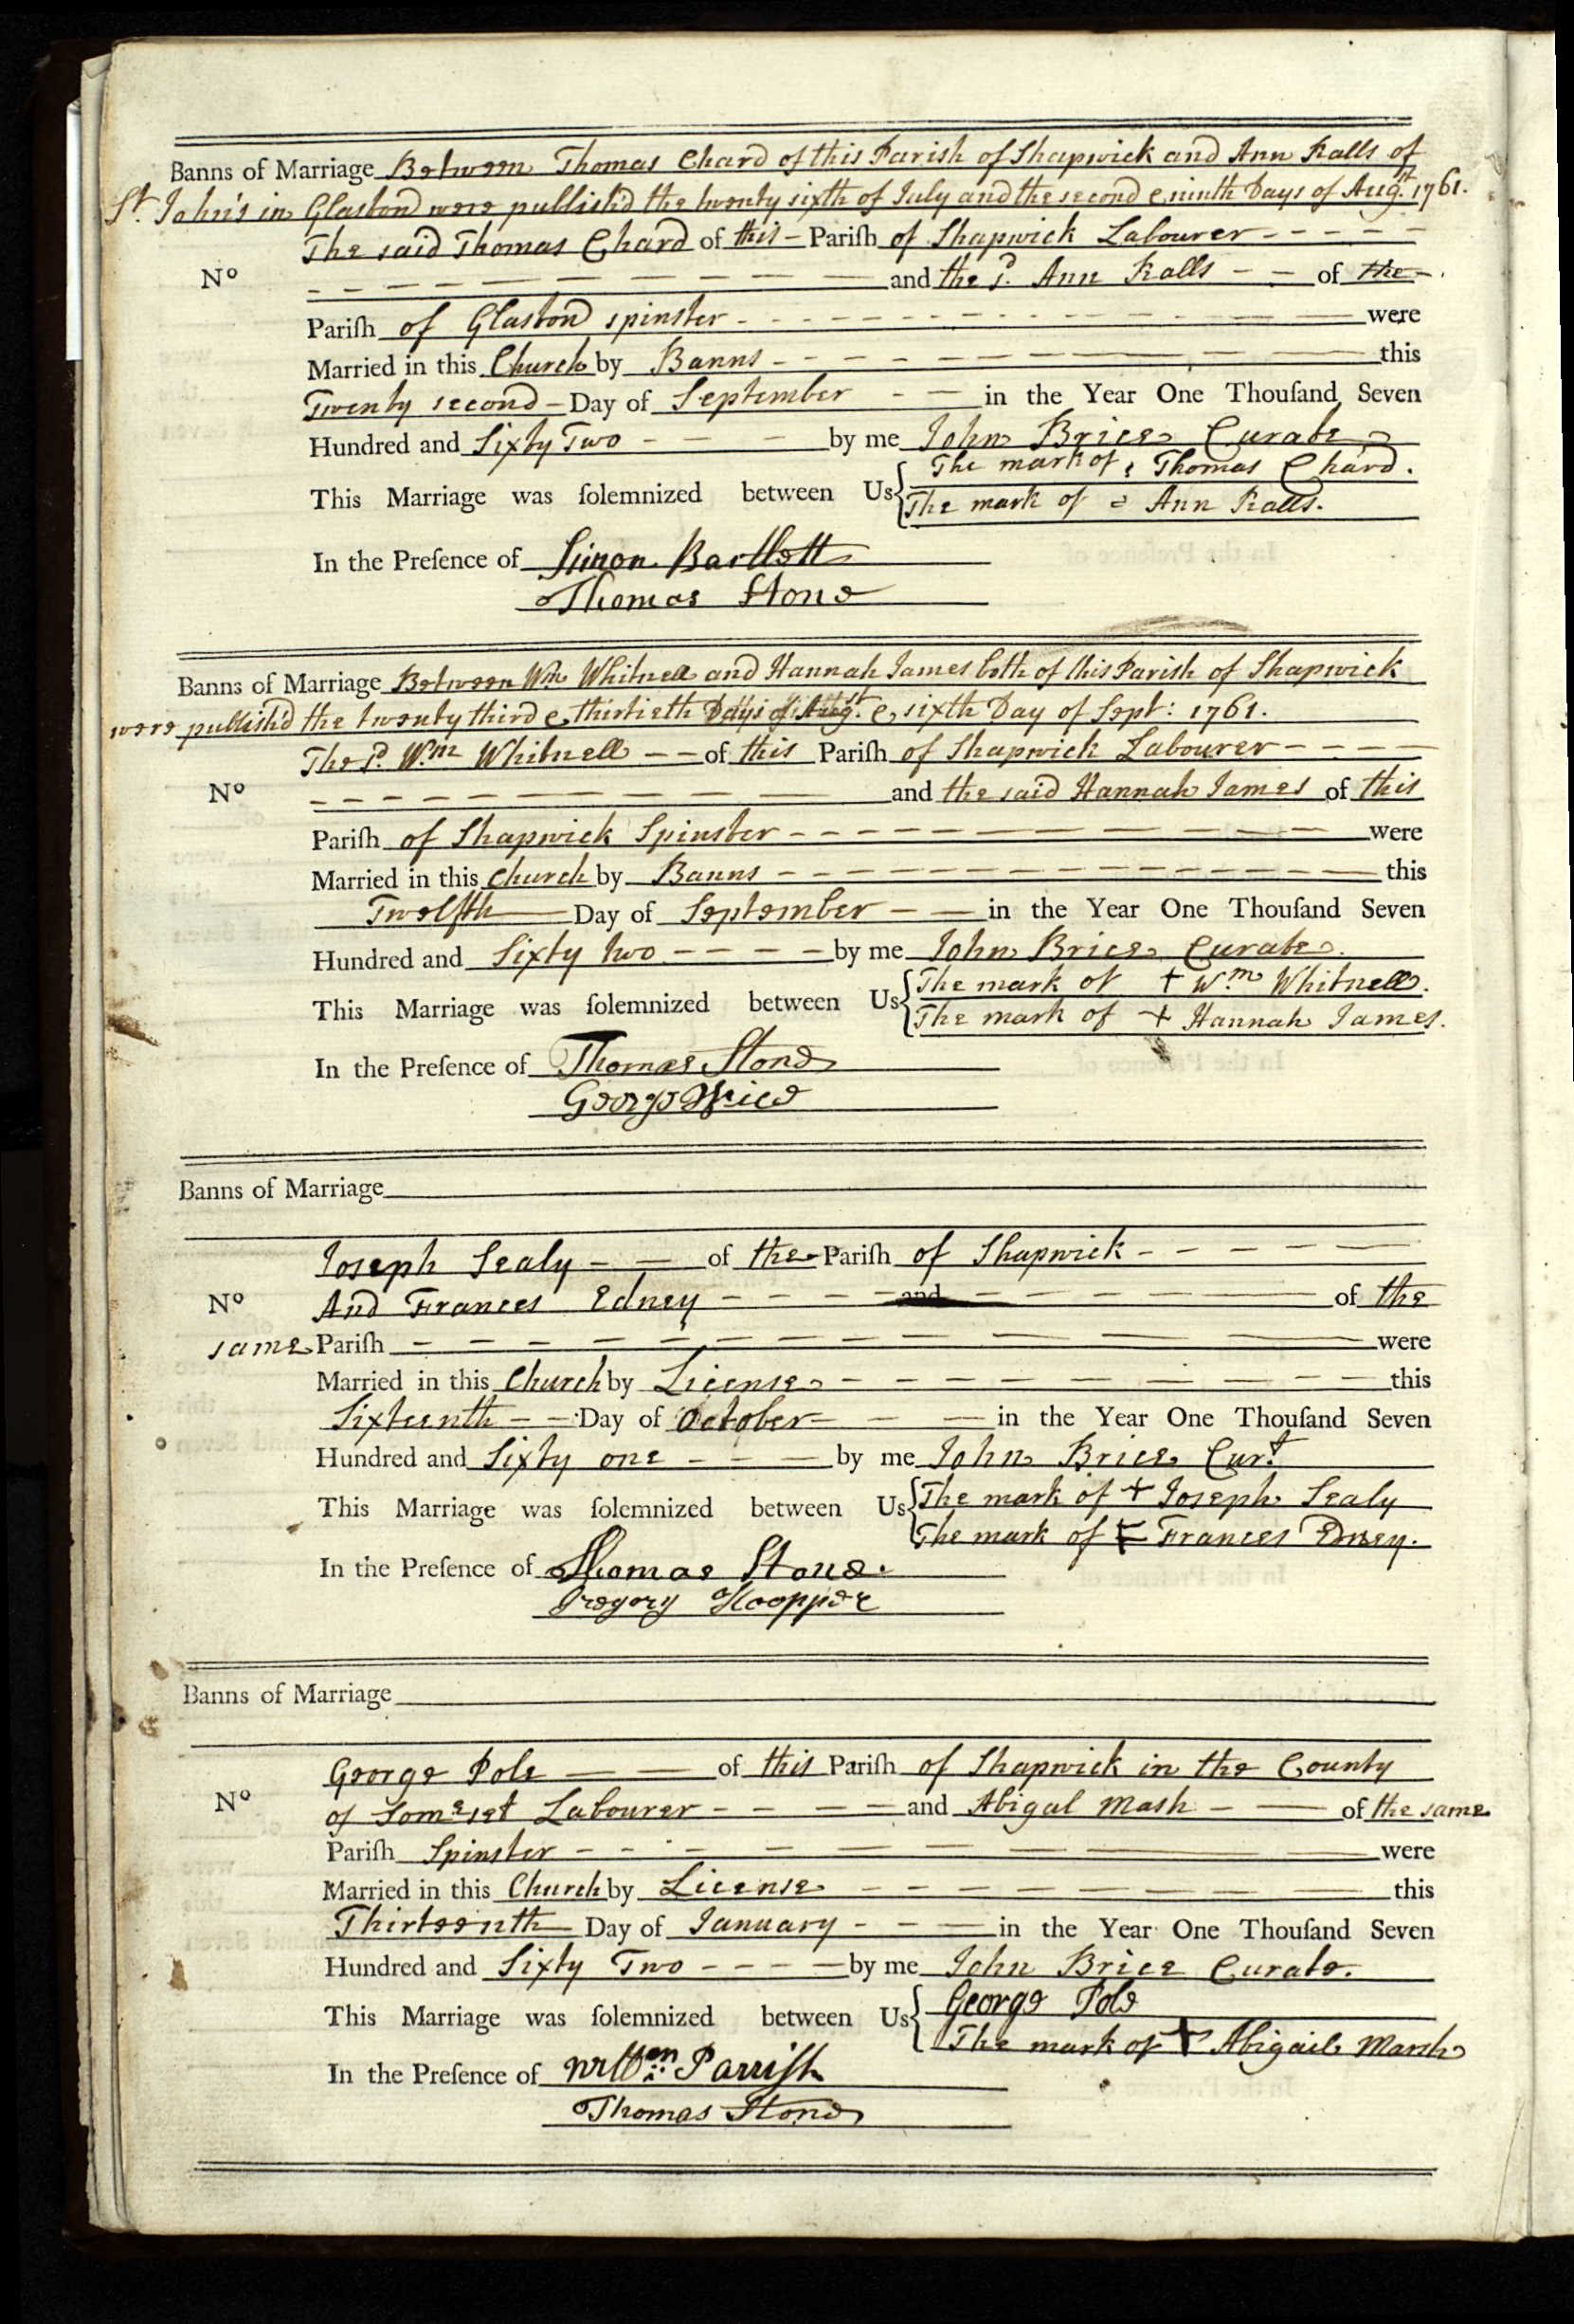 Banns of Marriage Between Thomas Chard of this Parish of Shapwick and Ann Ralls of
St John's in Glaston were publish'd the twenty sixth of July and the second & ninth Days of Augst. 1761.
The said Thomas Chard of this - Pariſh of Shapwick Labourer - - - - -
No - - - - - - - - - - and the sd. Ann Ralls - - of the -
Pariſh of Glaston spinster - - - - - - - - - - were
Married in this Church by Banns - - - - - - - - - this
Twenty second - Day of September - - in the Year One Thouſand Seven
Hundred and Sixty Two - - - by me John Brice Curate
This Marriage was ſolemnized between Us The mark of Thomas Chard.
The mark of Ann Ralls.
In the Preſence of Simon Bartlett
Thomas Stone
Banns of Marriage Between Wm Whitnell and Hannah James both of this Parish of Shapwick
were publish'd the twenty third & thirtieth Days of Augst. & sixth Day of Sept: 1761.
The sd. Wm Whitnell - - of this Pariſh of Shapwick Labourer - - - -
No - - - - - - - - - and the said Hannah James of this
Pariſh of Shapwick Spinster - - - - - - - - - were
Married in this Church by Banns - - - - - - - - - this
Twelfth Day of September - - in the Year One Thouſand Seven
Hundred and Sixty two - - - - by me John Brice Curate.
This Marriage was ſolemnized between Us The mark of + Wm Whitnell.
The mark of + Hannah James.
In the Preſence of Thomas Stone
George
Banns of Marriage
Joseph Sealy - - of the Pariſh of Shapwick - - - - -
No And Frances Edney - - - - and - - - - of the
same Pariſh - - - - - - - - - - were
Married in this Church by License - - - - - - - - - this
Sixteenth - - Day of October - - - in the Year One Thouſand Seven
Hundred and Sixty one - - - by me John Brice Curt
This Marriage was ſolemnized between Us The mark of + Joseph Sealy
The mark of F Frances Edney.
In the Preſence of Thomas Stone.
Gregory Hoopper
Banns of Marriage
George Pole - - of this Pariſh of Shapwick in the County
No of Somerset Labourer - - - - and Abigal Mash - - of the same
Pariſh Spinster - - - - - - - - were
Married in this Church by License - - - - - - - - this
Thirteenth Day of January - - - in the Year One Thouſand Seven
Hundred and Sixty Two - - - - by me John Brice Curate.
This Marriage was ſolemnized between Us George Pole
The mark of + Abigail Marsh
In the Preſence of Parrish
Thomas Stone